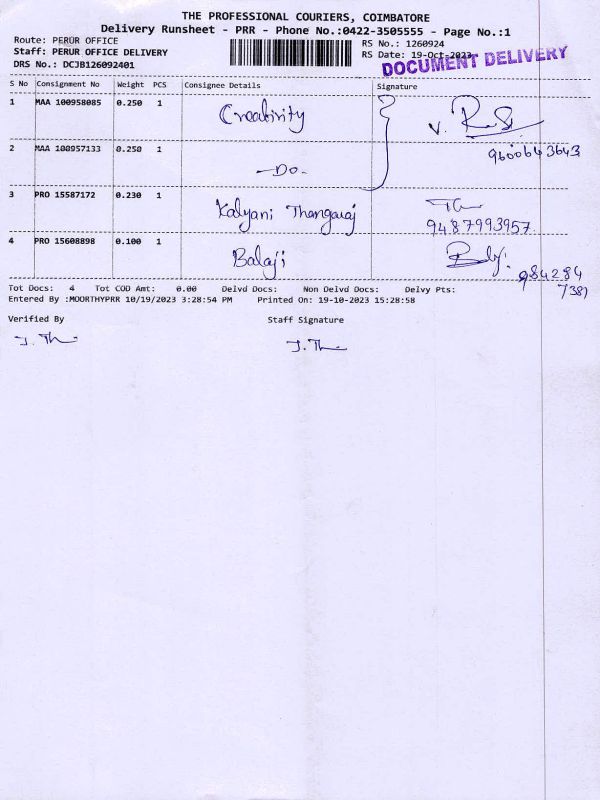 THE PROFESSIONAL COURIERS, COIMBATORE
Delivery Runsheet - PRR - Phone No.:0422-3505555 - Page No.:1
Route: PERUR OFFICE
RS No.: 1260924
Staff: PERUR OFFICE DELIVERY
RS Date: 19-Oct-2023
DRS No.: DCJB126092401
DOCUMENT DELIVERY
S No Consignment No Weight PCS Consignee Details Signature
1 MAA 100958085 0.250 1 Creativity
V. R.S.
2 MAA 100957133 0.250 1 9600643643
-Do-
3 PRO 15587172 0.230 1 Kalyani Thangaraj
9487993957
4 PRO 15608898 0.100 1 Balaji
984284
7381
Tot Docs: 4 Tot COD Amt: 0.00 Delvd Docs: Non Delvd Docs: Delvy Pts:
Entered By :MOORTHYPRR 10/19/2023 3:28:54 PM Printed On: 19-10-2023 15:28:58
Verified By Staff Signature